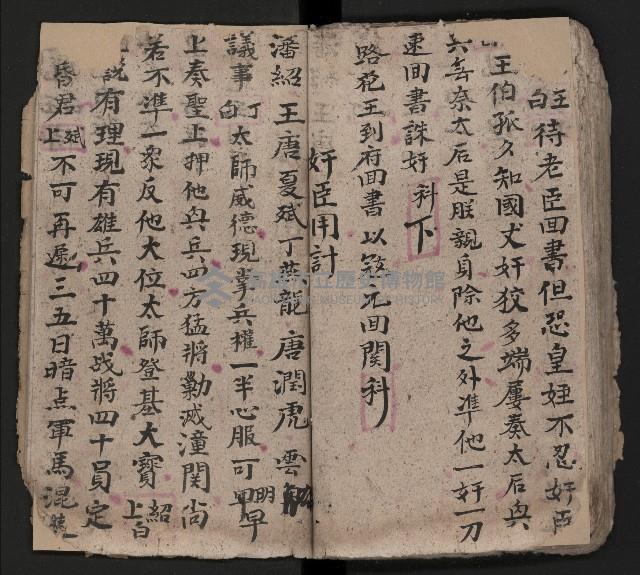 王白待老臣回書但恐皇姪不忍奸臣
王伯孤久知國丈奸狡多端屢奏太后與
六無奈太后是朕親身除他之外準他一奸一刀
速回書誅奸科下
路花王到府回書以死回関科
奸臣用計
潘紹王唐夏斌丁龍唐潤虎雲
議事丁白太師威德現掌兵權一半心服可早明早
上奏聖上押他與兵四方猛將勦滅潼関尚
若不準一衆反他大位太師登基大寳紹上白
説有理現有雄兵四十萬战將四十員定
昏君斌上不可再遲三五日暗点軍馬混
高雄市立歷史博物館
KAOHSIUNG MUSEUM OF HISTORY